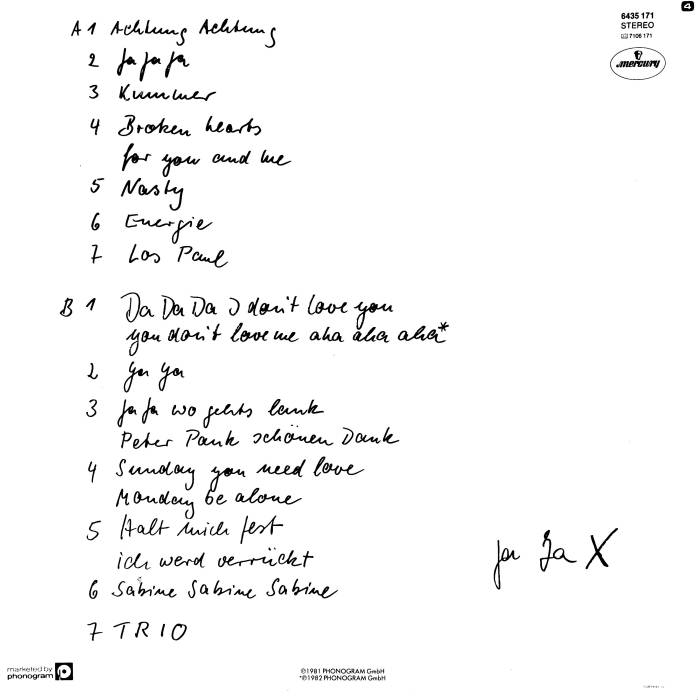 4
6435 171
STEREO
7106 171
mercury
A 1 Achtung Achtung
2 Ja Ja Ja
3 Kummer
4 Broken hearts
for you and me
5 Nasty
6 Energie
7 Los Paul
B 1 Da Da Da I don't love you
you don't love me aha aha aha*
2 Ya Ya
3 Ja Ja wo gehts lank
Peter Pank schönen Dank
4 Sunday you need love
Monday be alone
5 Halt mich fest
ich werd verrückt
6 Sabine Sabine Sabine
7 TRIO
Ja Ja X
marketed by
phonogram
℗1981 PHONOGRAM GmbH
*℗1982 PHONOGRAM GmbH